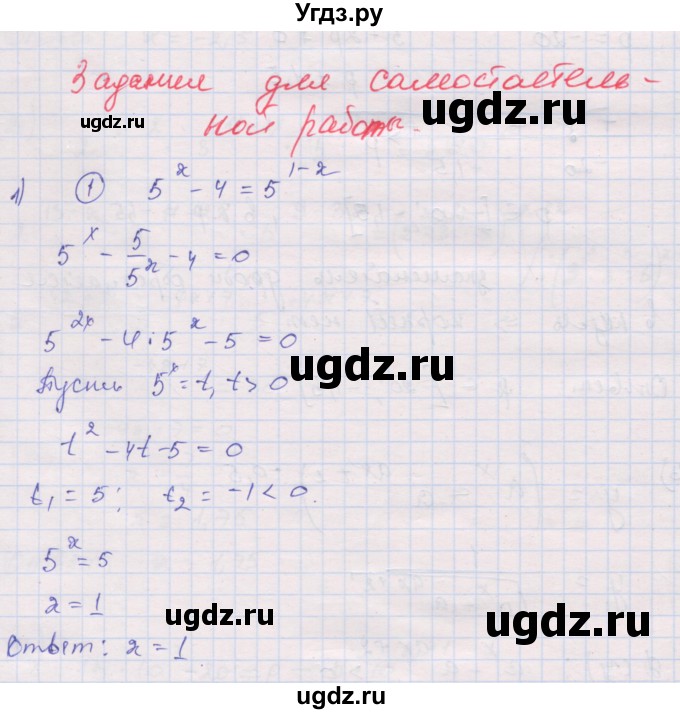 Угдз.ру
Задания для самостоятель-
ugdz.ru ugdz.ru
ной работы.
1) ① 5^x - 4 = 5^{1-x}
5^x - 5/5^x - 4 = 0
ugdz.ru
5^{2x} - 4·5^x - 5 = 0
ugdz.ru
Пусть 5^x = t, t > 0
t^2 - 4t - 5 = 0
t₁ = 5; t₂ = -1 < 0.
ugdz.ru
5^x = 5
x = 1
ugdz.ru ugdz.ru
Ответ: x = 1.
ugdz.ru